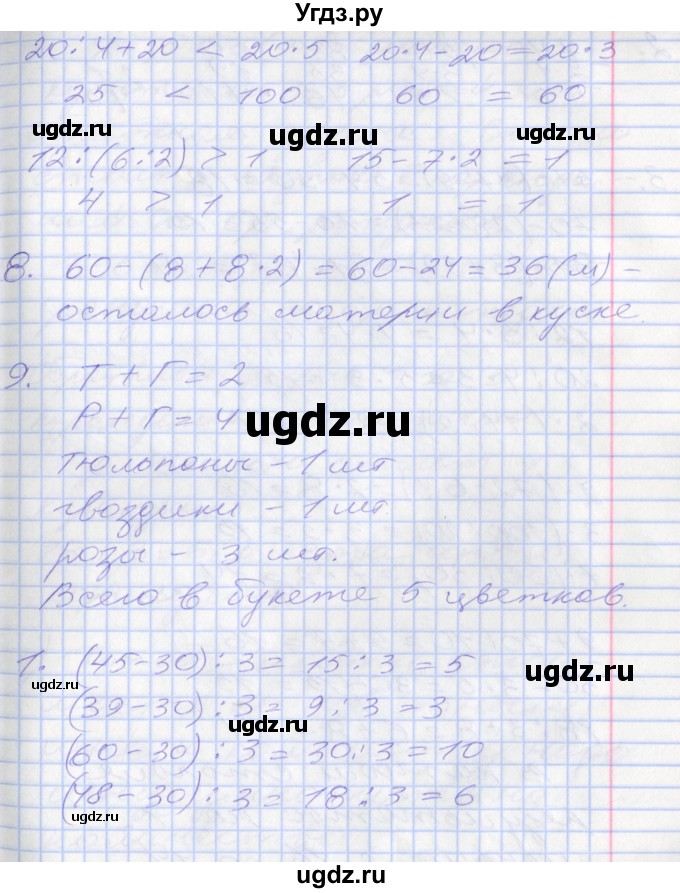 Угдз.ру
20:4+20 < 20·5 20·4-20=20·3
25 < 100 60 = 60
ugdz.ru ugdz.ru ugdz.ru
12:(6:2) > 1 15-7·2 = 1
4 > 1 1 = 1
8. 60-(8+8·2)=60-24=36(м)-
осталось материи в куске.
9. Т+Г=2
Р+Г=4
ugdz.ru
тюльпаны - 1 шт
гвоздики - 1 шт
розы - 3 шт.
Всего в букете 5 цветков.
1. (45-30):3=15:3=5
ugdz.ru ugdz.ru
(39-30):3=9:3=3
ugdz.ru
(60-30):3=30:3=10
(48-30):3=18:3=6
ugdz.ru
ugdz.ru